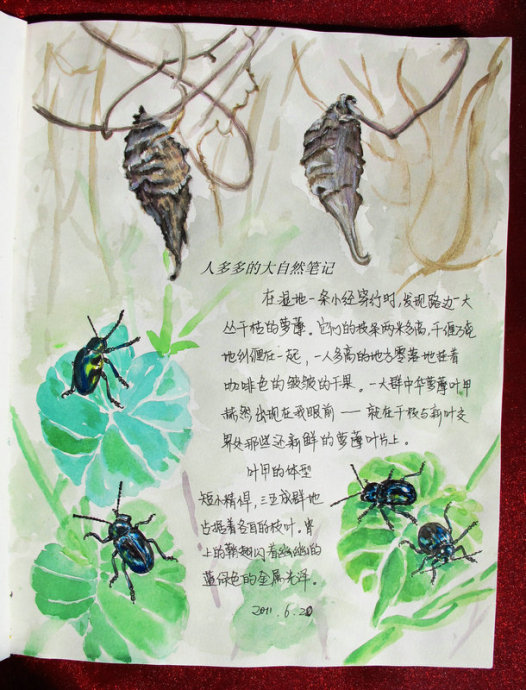 人多多的大自然笔记
在湿地一条小径穿行时,发现路边一大
丛干枯的萝藦。它们的枝条两米多高,干
地纠缠在一起,一人多高的地方零落地挂着
咖啡色的皱皱的干果。一大群中华萝藦叶甲
赫然出现在我眼前——就在干枝与新叶交
界处那些还新鲜的萝藦叶片上。
叶甲的体型
短小精悍,三五成群地
占据着各自的枝叶。身
上的鞘翅闪着幽幽的
蓝绿色的金属光泽。
2011.6.20